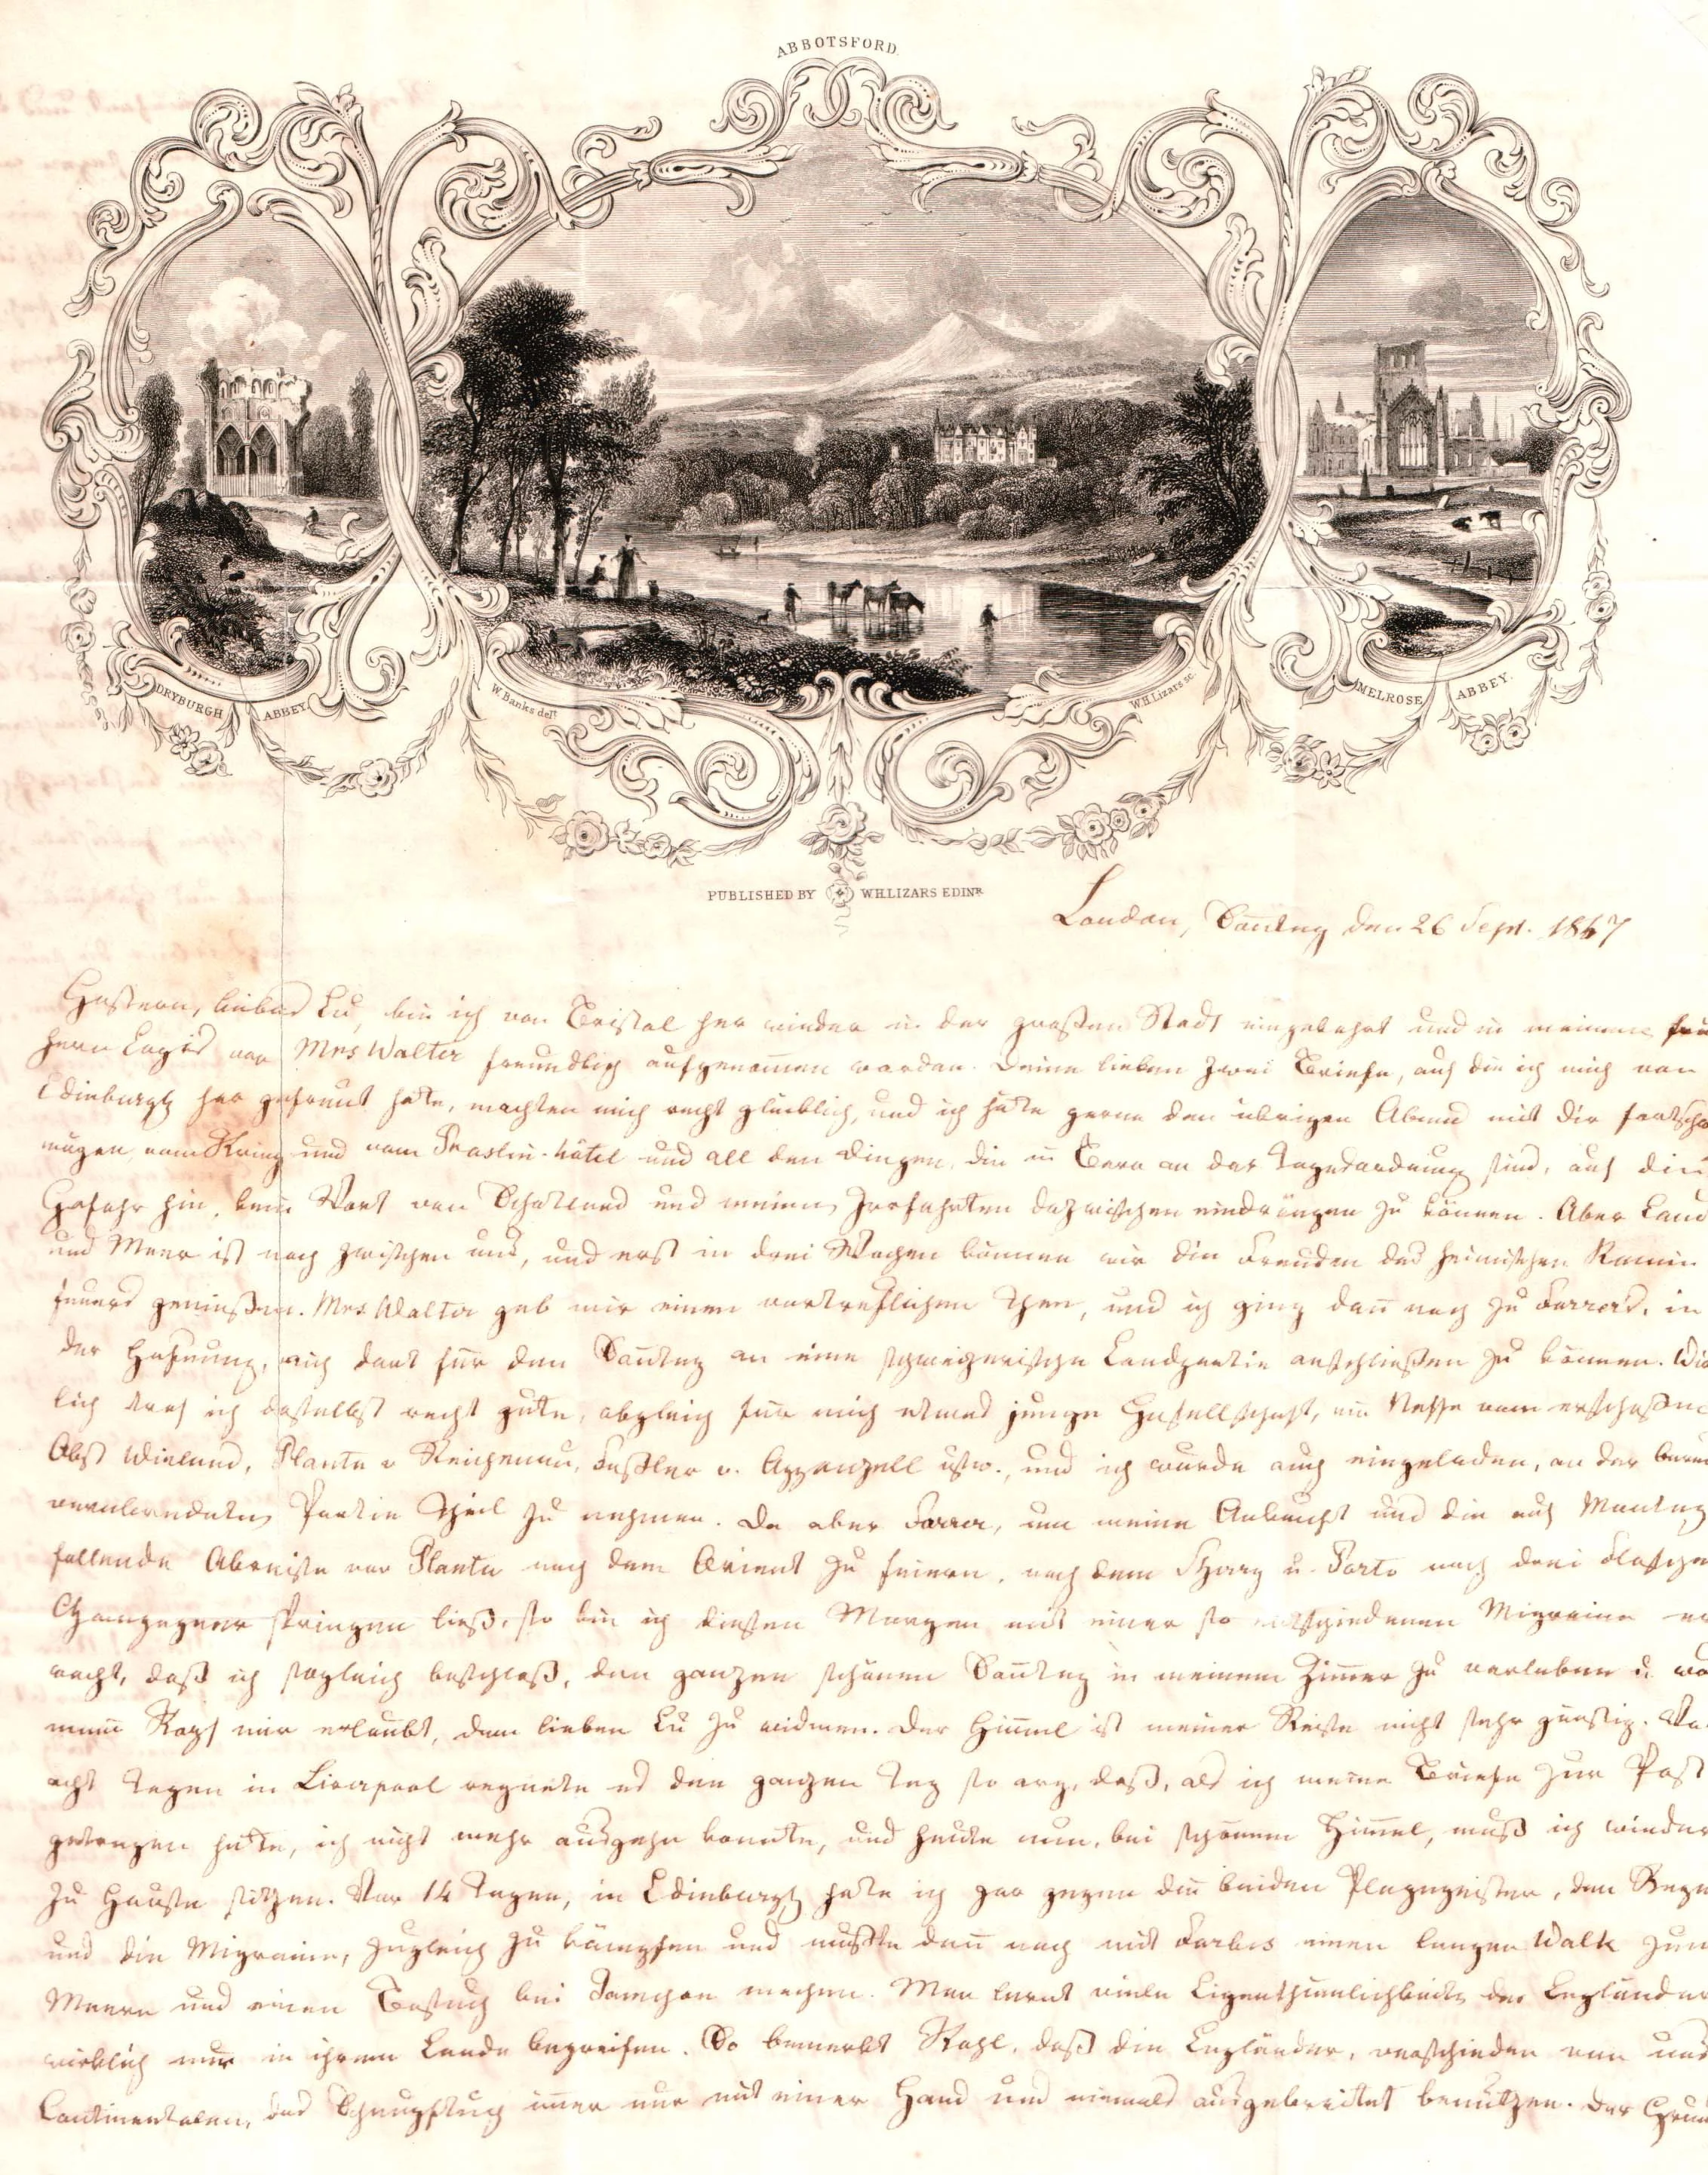 ABBOTSFORD.
DRYBURGH ABBEY.
W. Banks delt.
W.H. Lizars sc.
MELROSE ABBEY.
PUBLISHED BY W.H. LIZARS EDINR.
London, Sontag den 26 Sept. 1847
Gestern, lieber Lu, bin ich von Bristol her wieder in der grossen Stadt eingekehrt und in meinem frü
hern Logis von Mrs Walter freundlich aufgenomen worden. Deine lieben zwei Briefe, auf die ich mich von
Edinburgh her gefreut hatte, machten mich recht glücklich, und ich hätte gerne den übrigen Abend mit Dir
vom Krieg und vom Praslin-hôtel und all den Dingen, die in Bern an der Tagesordnung sind, auf die
Gefahr hin, kein Wort von Schottland und meinen Irrfahrten dazwischen eindrängen zu können. Aber Land
und Meer ist noch zwischen uns, und erst in drei Wochen können wir die Freuden des heimischen Kamin
feuers geniessen. Mrs Walter gab mir einen vortrefflichen Thee, und ich ging dan noch zu Farrer's, in
der Hoffnung, mich dort für den Sontag an eine schweizerische Landpartie anschliessen zu können. Wirk
lich traf ich daselbst recht gute, obgleich für mich etwas junge Gesellschaft, ein Neffe vom erschossnen
Obst Wieland, Planta v Reichenau, Fässler v. Appenzell usw., und ich wurde auch eingeladen, an der bereits
verabredeten Partie Theil zu nehmen. Da aber Farrer, um meine Ankunft und die auf Montag
fallende Abreise von Planta nach dem Orient zu feiern, nach dem Sherry u. Porto noch drei Flaschen
Champagner springen liess, so bin ich diesen Morgen mit einer so entschiedenen Migraine er
wacht, dass ich sogleich beschloss, den ganzen schönen Sontag in meinem Zimer zu verleben u. wo
mein Kopf mir erlaubt, dem lieben Lu zu widmen. Der Himel ist meiner Reise nicht sehr günstig. Vor
acht Tagen in Liverpool regnete es den ganzen Tag so arg, dass, als ich meine Briefe zur Post
getragen hatte, ich nicht mehr ausgehn konnte, und heute nun, bei schönem Himel, muss ich wieder
zu Hause sitzen. Vor 14 Tagen, in Edinburgh hatte ich gar gegen die beiden Plagegeister, den Regen
und die Migraine, zugleich zu kämpfen und musste dan noch mit Forbes einen langen Walk zum
Meere und einen Besuch bei machen. Man lernt viele Eigenthümlichkeiten der Engländer
wirklich nur in ihrem Lande begreifen. So bemerkt Kohl, dass die Engländer, verschieden von uns
Continentalen, das Schnupftuch imer nur mit einer Hand und niemals ausgebreitet benützen. Der Grund